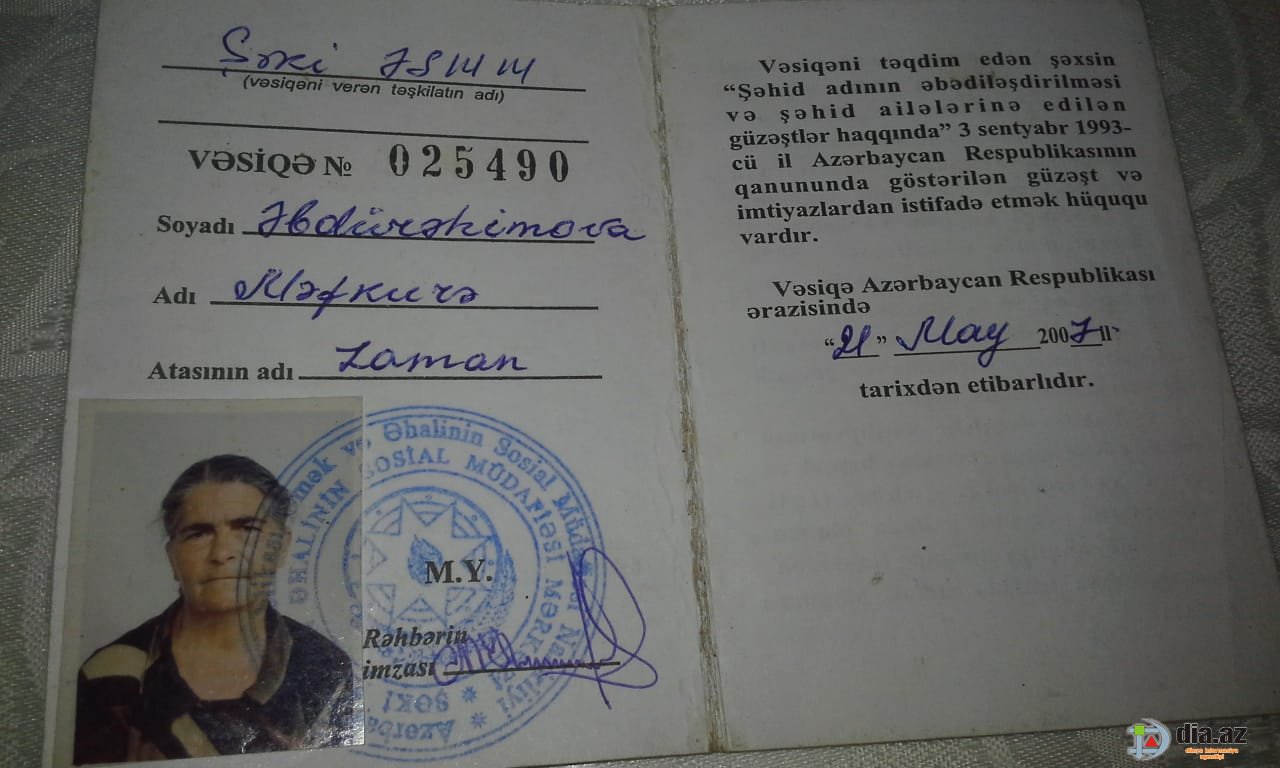 Şəki ƏSMM
(vəsiqəni verən təşkilatın adı)
VƏSİQƏ № 025490
Soyadı Əbdürəhimova
Adı Məfkurə
Atasının adı Zaman
Əmək və Əhalinin Sosial Müdafiəsi Nazirliyi
ƏHALİNİN SOSİAL MÜDAFİƏSİ MƏRKƏZİ
ŞƏKİ
M.Y.
Rəhbərin
imzası
Vəsiqəni təqdim edən şəxsin
“Şəhid adının əbədiləşdirilməsi
və şəhid ailələrinə edilən
güzəştlər haqqında” 3 sentyabr 1993-
cü il Azərbaycan Respublikasının
qanununda göstərilən güzəşt və
imtiyazlardan istifadə etmək hüququ
vardır.
Vəsiqə Azərbaycan Respublikası
ərazisində
“21” May 2007 il
tarixdən etibarlıdır.
dia.az
dünya informasiya
agentliyi